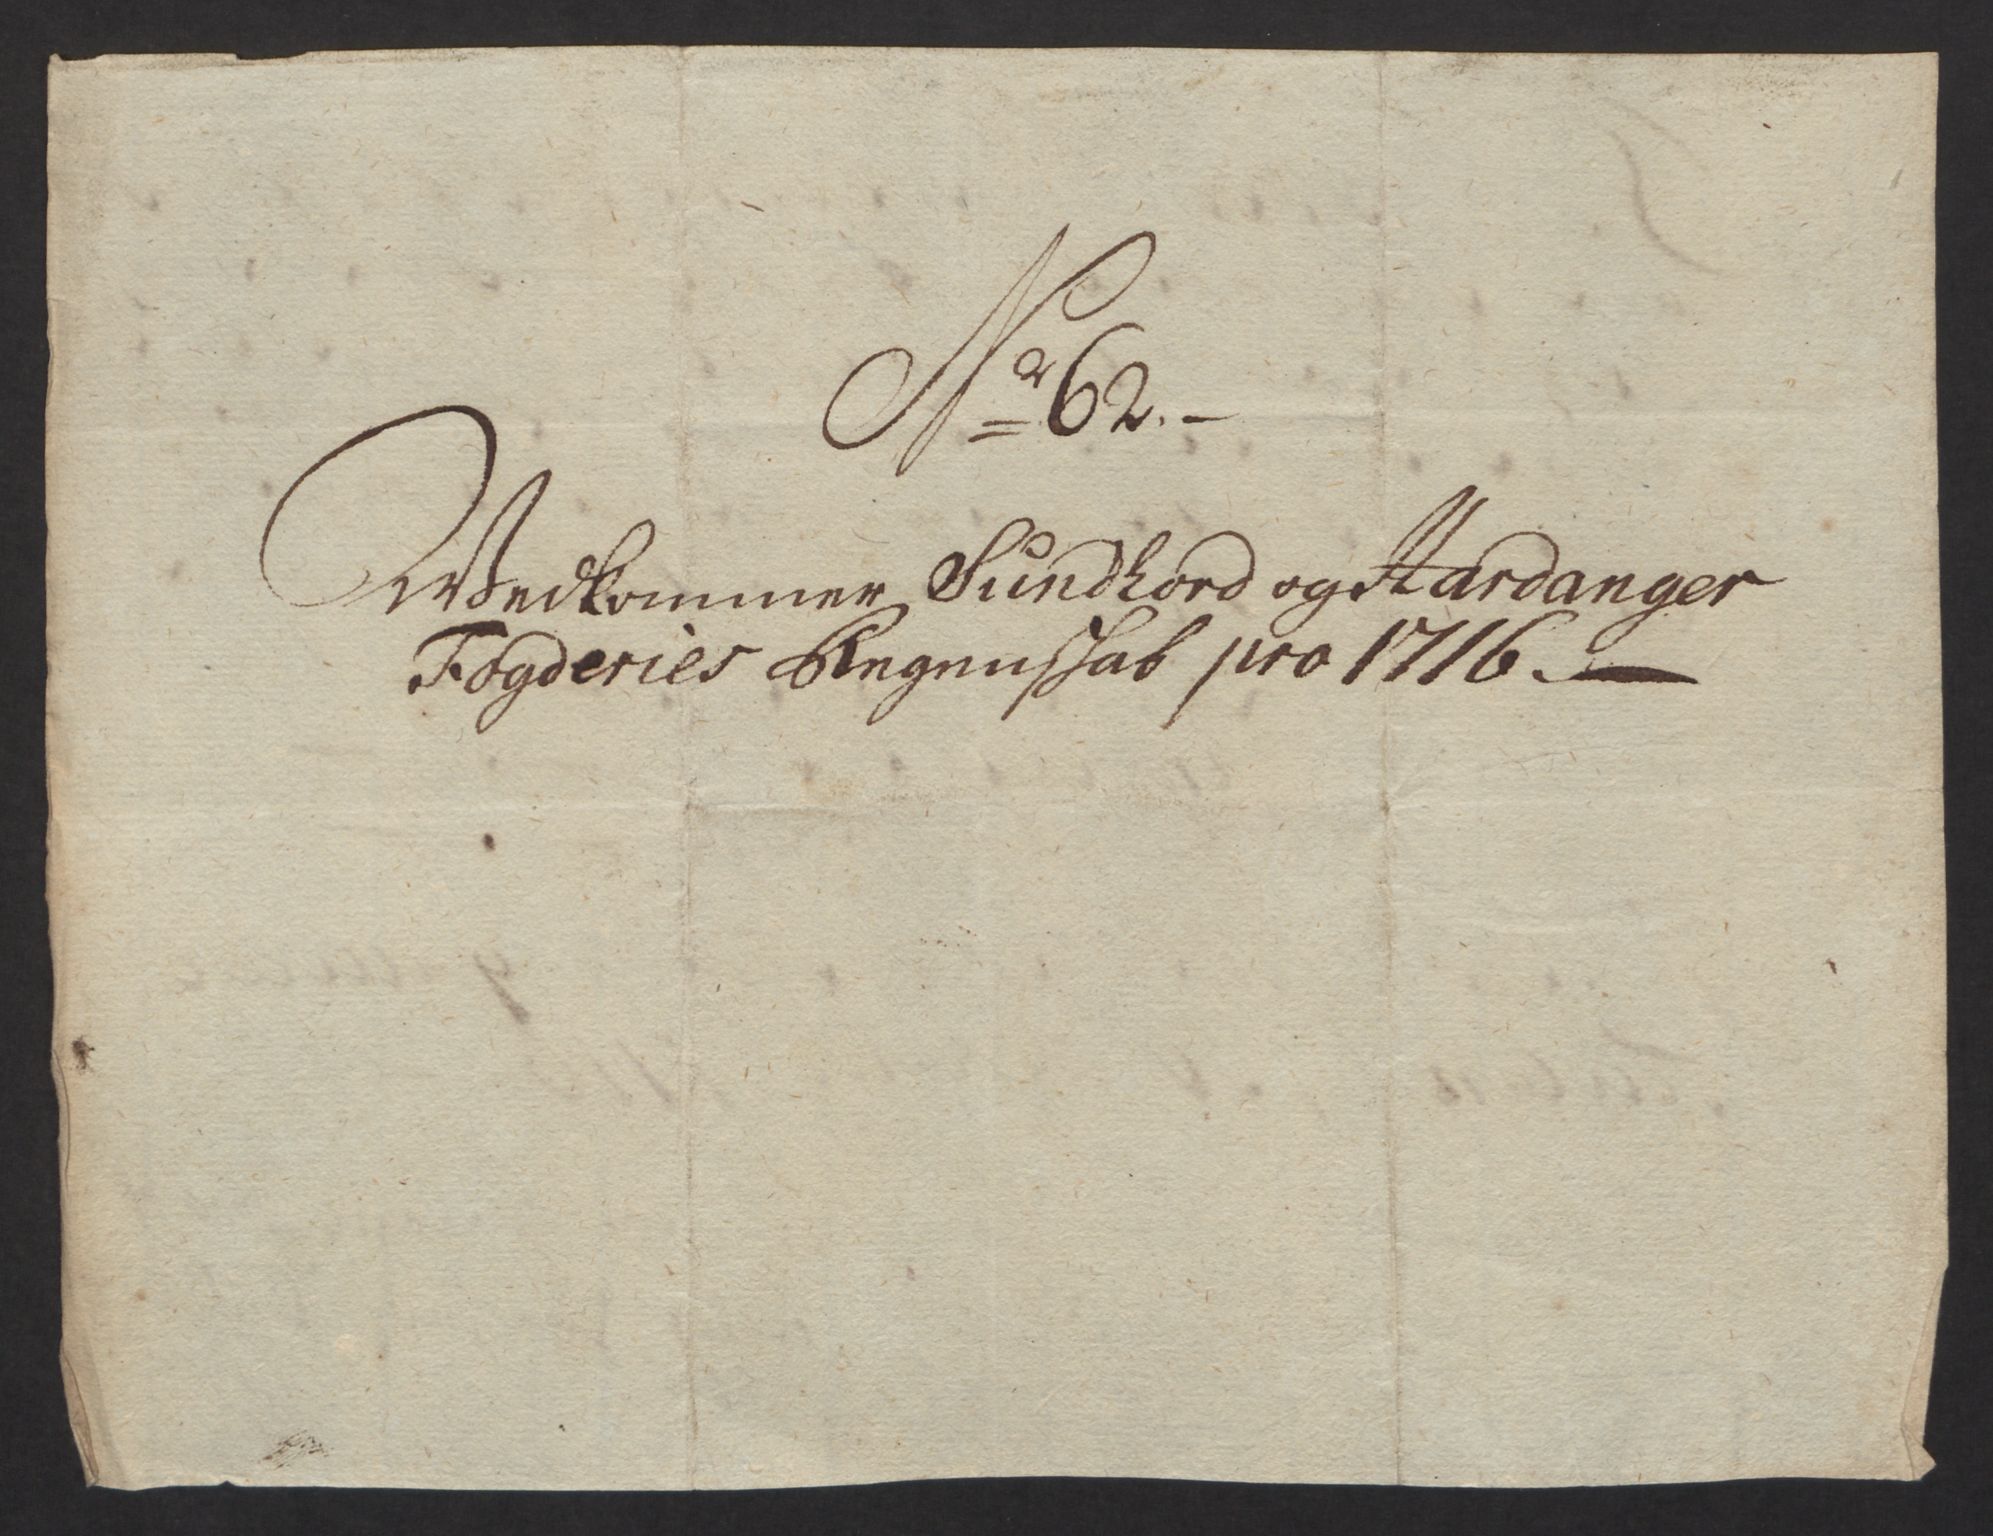 No 62.-
Vedkommer Sundhord og Hardanger
Fogderies Regenskab pro 1716.